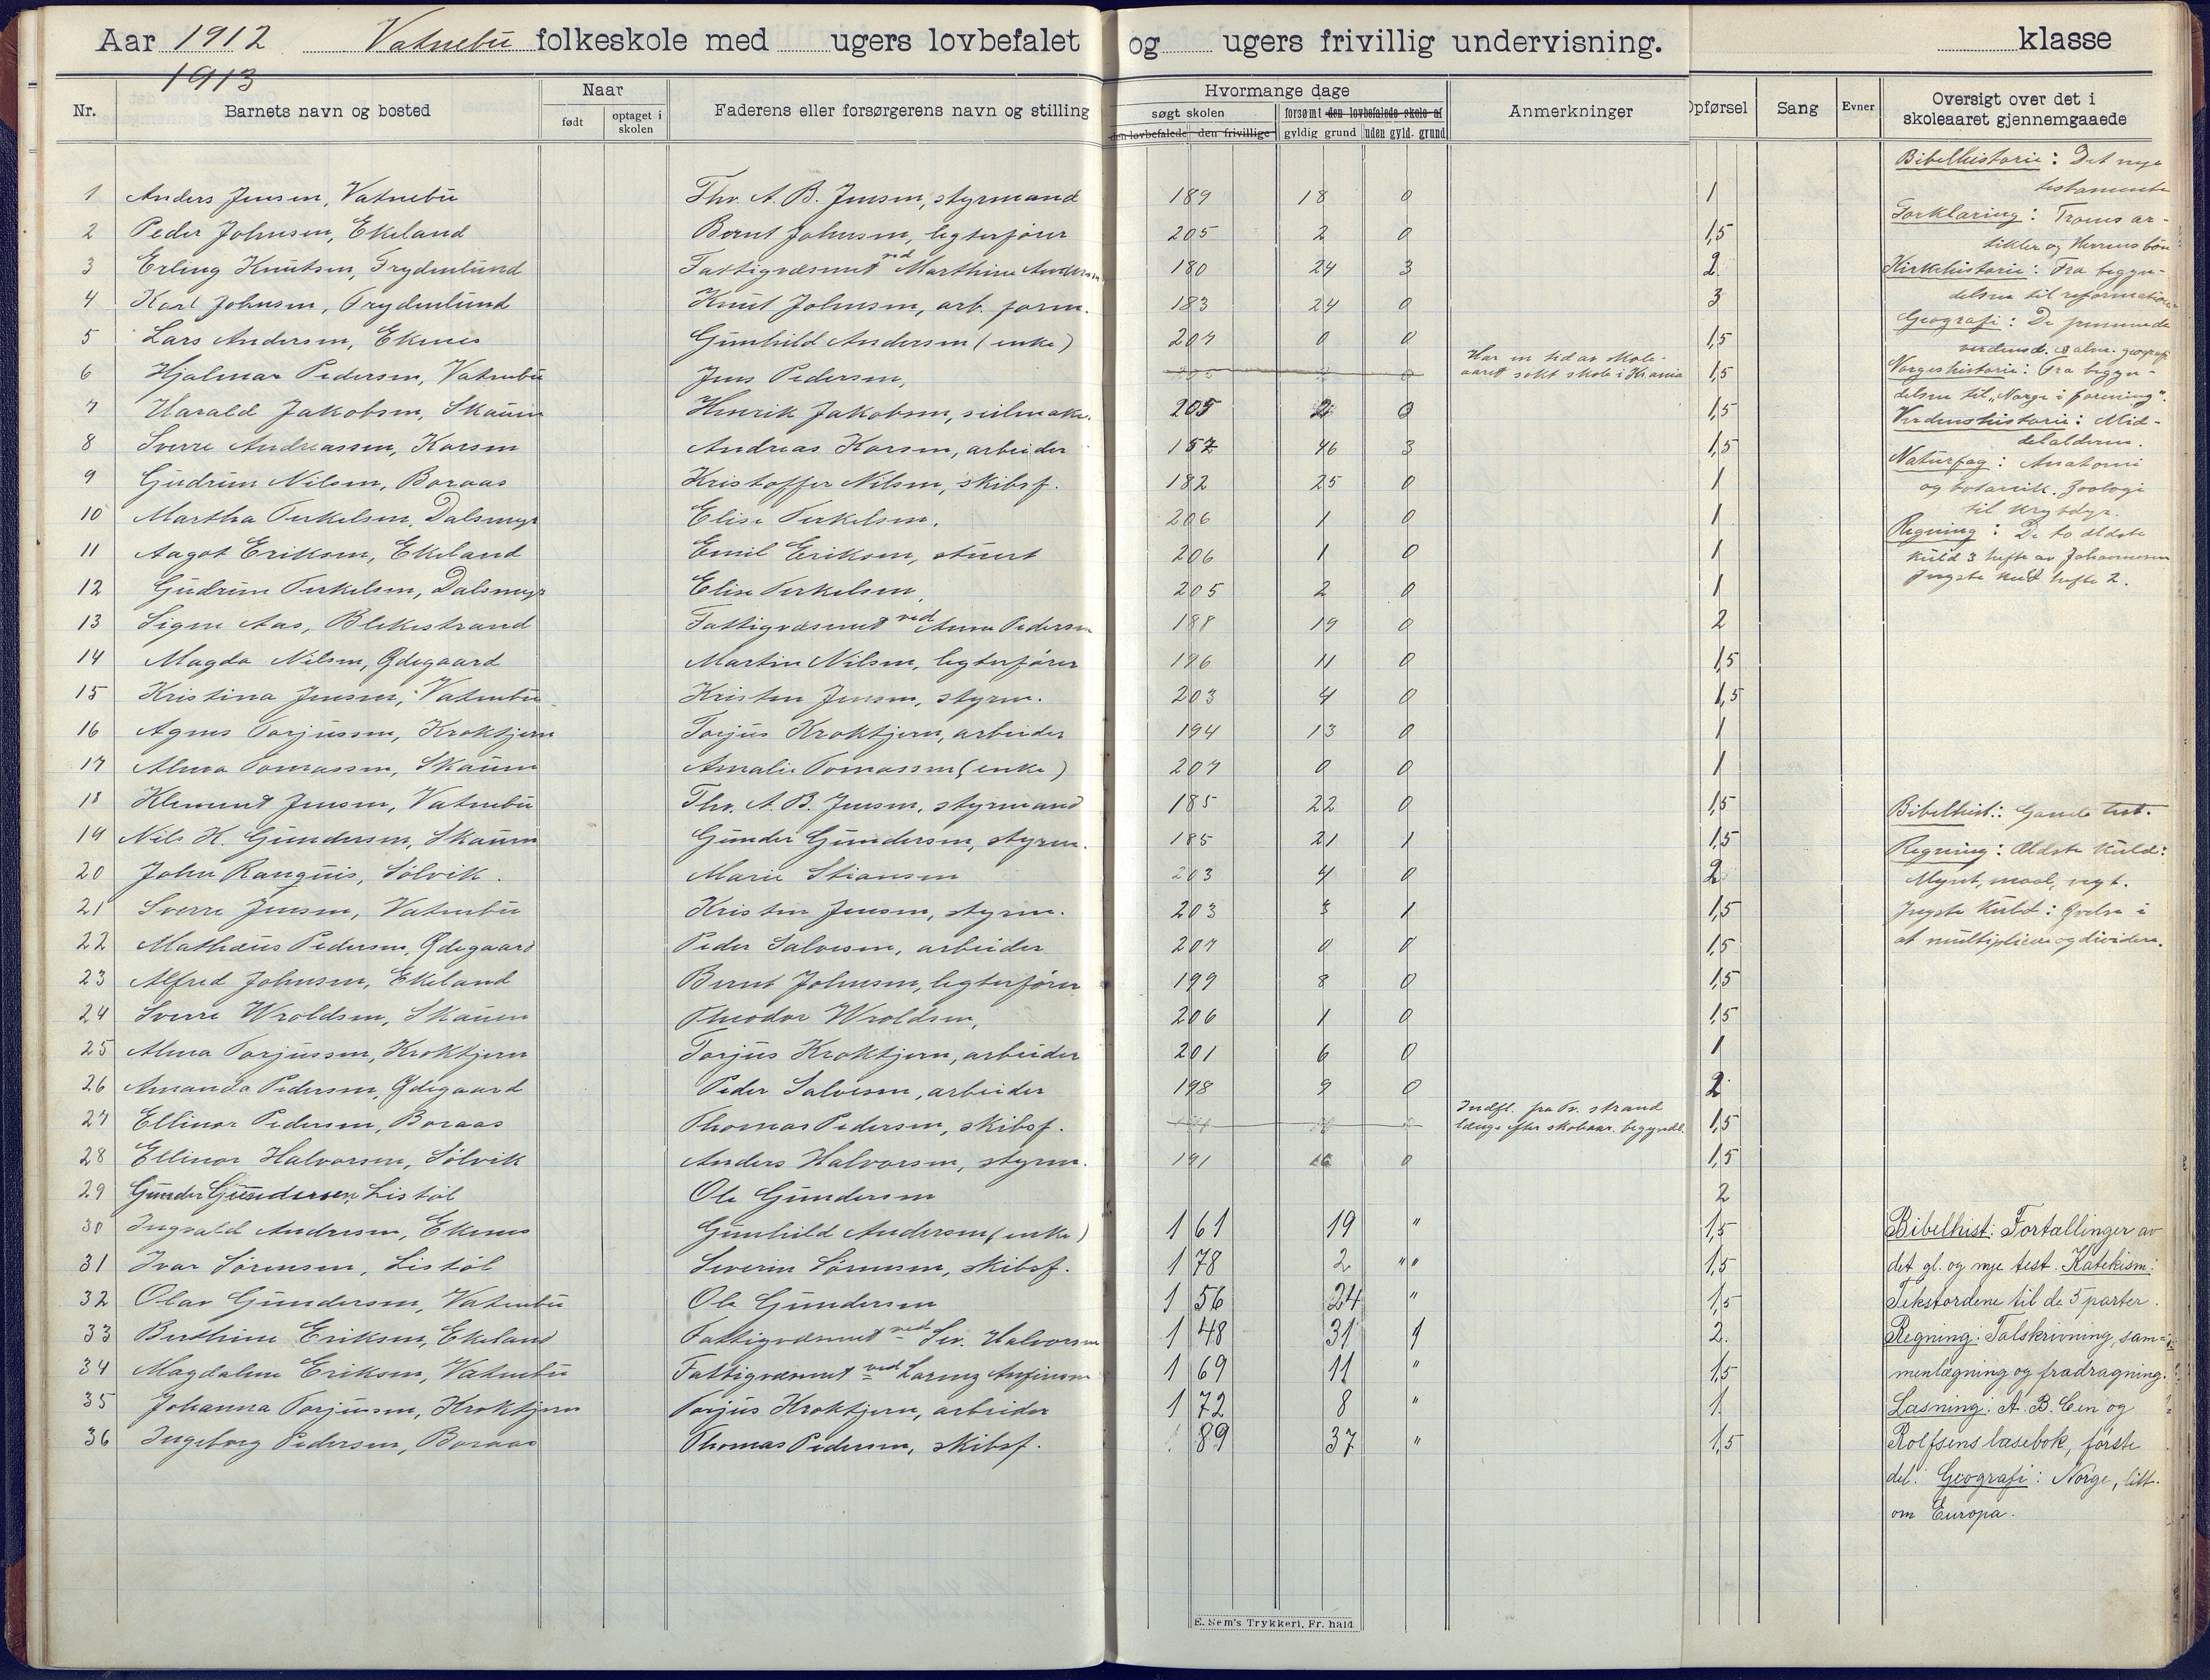 Aar 1912 Vatnebu folkeskole med ugers lovbefalet og ugers frivillig undervisning. klasse
1913
Nr. Barnets navn og bosted Naar Faderens eller forsørgerens navn og stilling Hvormange dage Anmerkninger Opførsel Sang Evner Oversigt over det i skoleaaret gjennemgaaede
født optaget i skolen søgt skolen forsømt den lovbefalede skole af
den lovbefalede den frivillige gyldig grund uden gyld. grund
1 Anders Jensen, Vatnebu Thv. A. B. Jensen, styrmand 189 18 0 1
2 Peder Johnsen, Ekeland Bernt Johnsen, legterfører 205 2 0 1,5
3 Erling Knutsen, Frydenlund Fattigvæsenet ved Marthine Andersen 180 24 3 2
4 Karl Johnsen, Frydenlund Knut Johnsen, arb. form. 183 24 0 3
5 Lars Andersen, Ekenes Gunhild Andersen (enke) 207 0 0 1,5
6 Hjalmar Pedersen, Vatnebu Jens Pedersen, Har en tid av skoleaaret søkt skole i Krania 1,5
7 Harald Jakobsen, Skauen Henrik Jakobsen, seilmaker. 205 2 0 1,5
8 Sverre Andreassen, Korsen Andreas Korsen, arbeider 157 46 3 1,5
9 Gudrun Nilsen, Boraas Kristoffer Nilsen, skibsf. 182 25 0 1
10 Martha Terkelsen, Dalsmyr Elise Terkelsen. 206 1 0 1
11 Aagot Eriksen, Ekeland Emil Eriksen, stuert 206 1 0 1
12 Gudrun Terkelsen, Dalsmyr Elise Terkelsen, 205 2 0 1
13 Signe Aas, Blekestrand Fattigvæsenet ved Anna Pedersen 188 19 0 2
14 Magda Nilsen, Ødegaard Martin Nilsen, legterfører 196 11 0 1,5
15 Kristina Jensen, Vatnebu Kristen Jensen, styrm. 203 4 0 1,5
16 Agnes Torjussen, Kroktjern Torjus Kroktjern, arbeider 194 13 0 1
17 Alma Tomassen, Skauen Amalie Tomassen (enke) 207 0 0 1
18 Klement Jensen, Vatnebu Thv. A. B. Jensen, styrmand 185 22 0 1,5
19 Nils K. Gundersen, Skauen Gunder Gundersen, styrm. 185 21 1 1,5
20 John Rangnis, Sølvik. Marie Stiansen 203 4 0 2
21 Sverre Jensen, Vatnebu Kristen Jensen, styrm. 203 3 1 1,5
22 Mathæus Pedersen, Ødegaard Peder Salvesen, arbeider 207 0 0 1,5
23 Alfred Johnsen, Ekeland Bernt Johnsen, legterfører 199 8 0 1,5
24 Sverre Wroldsen, Skauen Theodor Wroldsen, 206 1 0 1,5
25 Alma Torjussen, Kroktjern Torjus Kroktjern, arbeider 201 6 0 1
26 Amanda Pedersen, Ødegaard Peder Salvesen, arbeider 198 9 0 2
27 Ellinor Pedersen, Boraas Thomas Pedersen, skibsf. Indfl. fra Tv. strand længe efter skoleaar. begyndel. 1,5
28 Ellinor Halvorsen, Sølvik Anders Halvorsen, styrm. 191 16 0 1,5
29 Gunder Gundersen, Listøl Ole Gundersen 2
30 Ingvald Andersen, Ekenes Gunhild Andersen (enke) 161 19 " 1,5
31 Ivar Sørensen, Listøl Severin Sørensen, skibsf. 178 2 " " 1,5
32 Olav Gundersen, Vatnebu Ole Gundersen 156 24 " 1,5
33 Berthine Eriksen, Ekeland Fattigvæsenet ved Sev. Halvorsen 148 31 1 2
34 Magdalene Eriksen, Vatnebu Fattigvæsenet ved 169 11 " 1,5
35 Johanna Torjussen, Kroktjern Torjus Kroktjern, arbeider 172 8 " 1
36 Ingeborg Pedersen, Boraas Thomas Pedersen, skibsf. 89 37 " 1,5
Bibelhistorie: Det nye
testamente
Forklaring: Troens ar-
tikler og Herrens bøn
Kirkehistorie: Fra begyn-
delsen til reformationen
Geografi: De fremmede
verdensd. & alm. geografi
Norgeshistorie: Fra begyn-
delsen til "Norge i forening".
Verdenshistorie: Mid-
delalderen.
Naturfag: Anatomi
og botanik. Zoologi
til krybdyr.
Regning: De to ældste
kuld 3 hefte av Johannesen
Yngste kuld hefte 2.
Bibelhist.: Gamle test.
Regning: Ældste kuld:
Mynt, maal, vegt.
Yngste kuld: Øvelse i
at multiplicere og dividere.
Bibelhist: Fortællinger av
det gl. og nye test. Katekism:
Tekstordene til de 5 parter.
Regning: Talskrivning, sam-
menlægning og fradragning.
Læsning: A. B. C en og
Rolfsens læsebok, første
del. Geografi: Norge, litt
om Europa.
E. Sem's Trykkeri, Fr. hald.